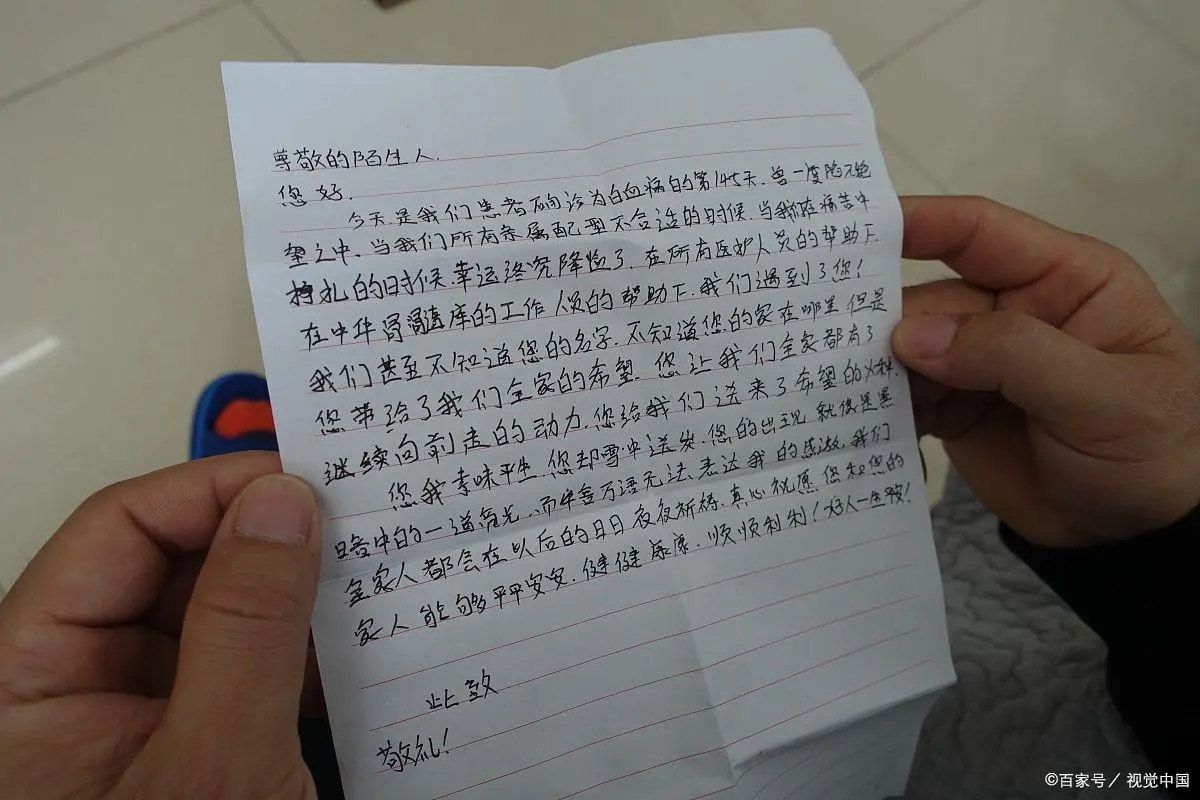 尊敬的陌生人.
您好.
今天是我们患者确诊为白血病的第145天.曾一度陷入绝
望之中.当我们所有亲属配型不合适的时候.当我们在痛苦中
挣扎的时候.幸运终究降临了.在所有医护人员的帮助下.
在中华骨髓库的工作人员的帮助下.我们遇到了您!
我们甚至不知道您的名字.不知道您的家在哪里但是
您带给了我们全家的希望.您让我们全家都有了
继续向前走的动力.您给我们送来了希望的火种.
您我素昧平生.您却雪中送炭.您的出现就像是黑
暗中的一道亮光.而千言万语无法表达我的感激.我们
全家人都会在以后的日日夜夜祈祷.真心祝愿您和您的
家人能够平平安安.健健康康.顺顺利利!好人一生平安!
此致
敬礼!
©百家号/视觉中国